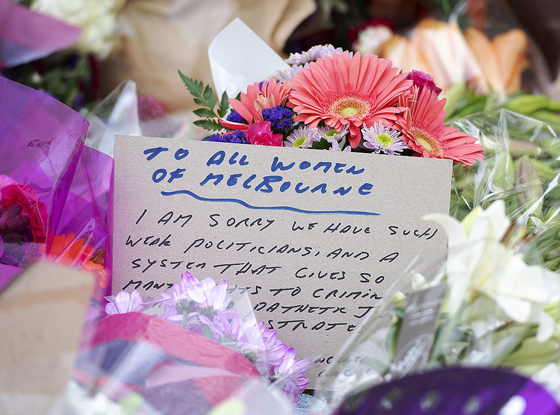 TO ALL WOMEN
OF MELBOURNE
I AM SORRY WE HAVE SUCH
WEAK POLITICIANS, AND A
SYSTEM THAT GIVES SO
TO CRIMIN
PATHETIC J
STRATE